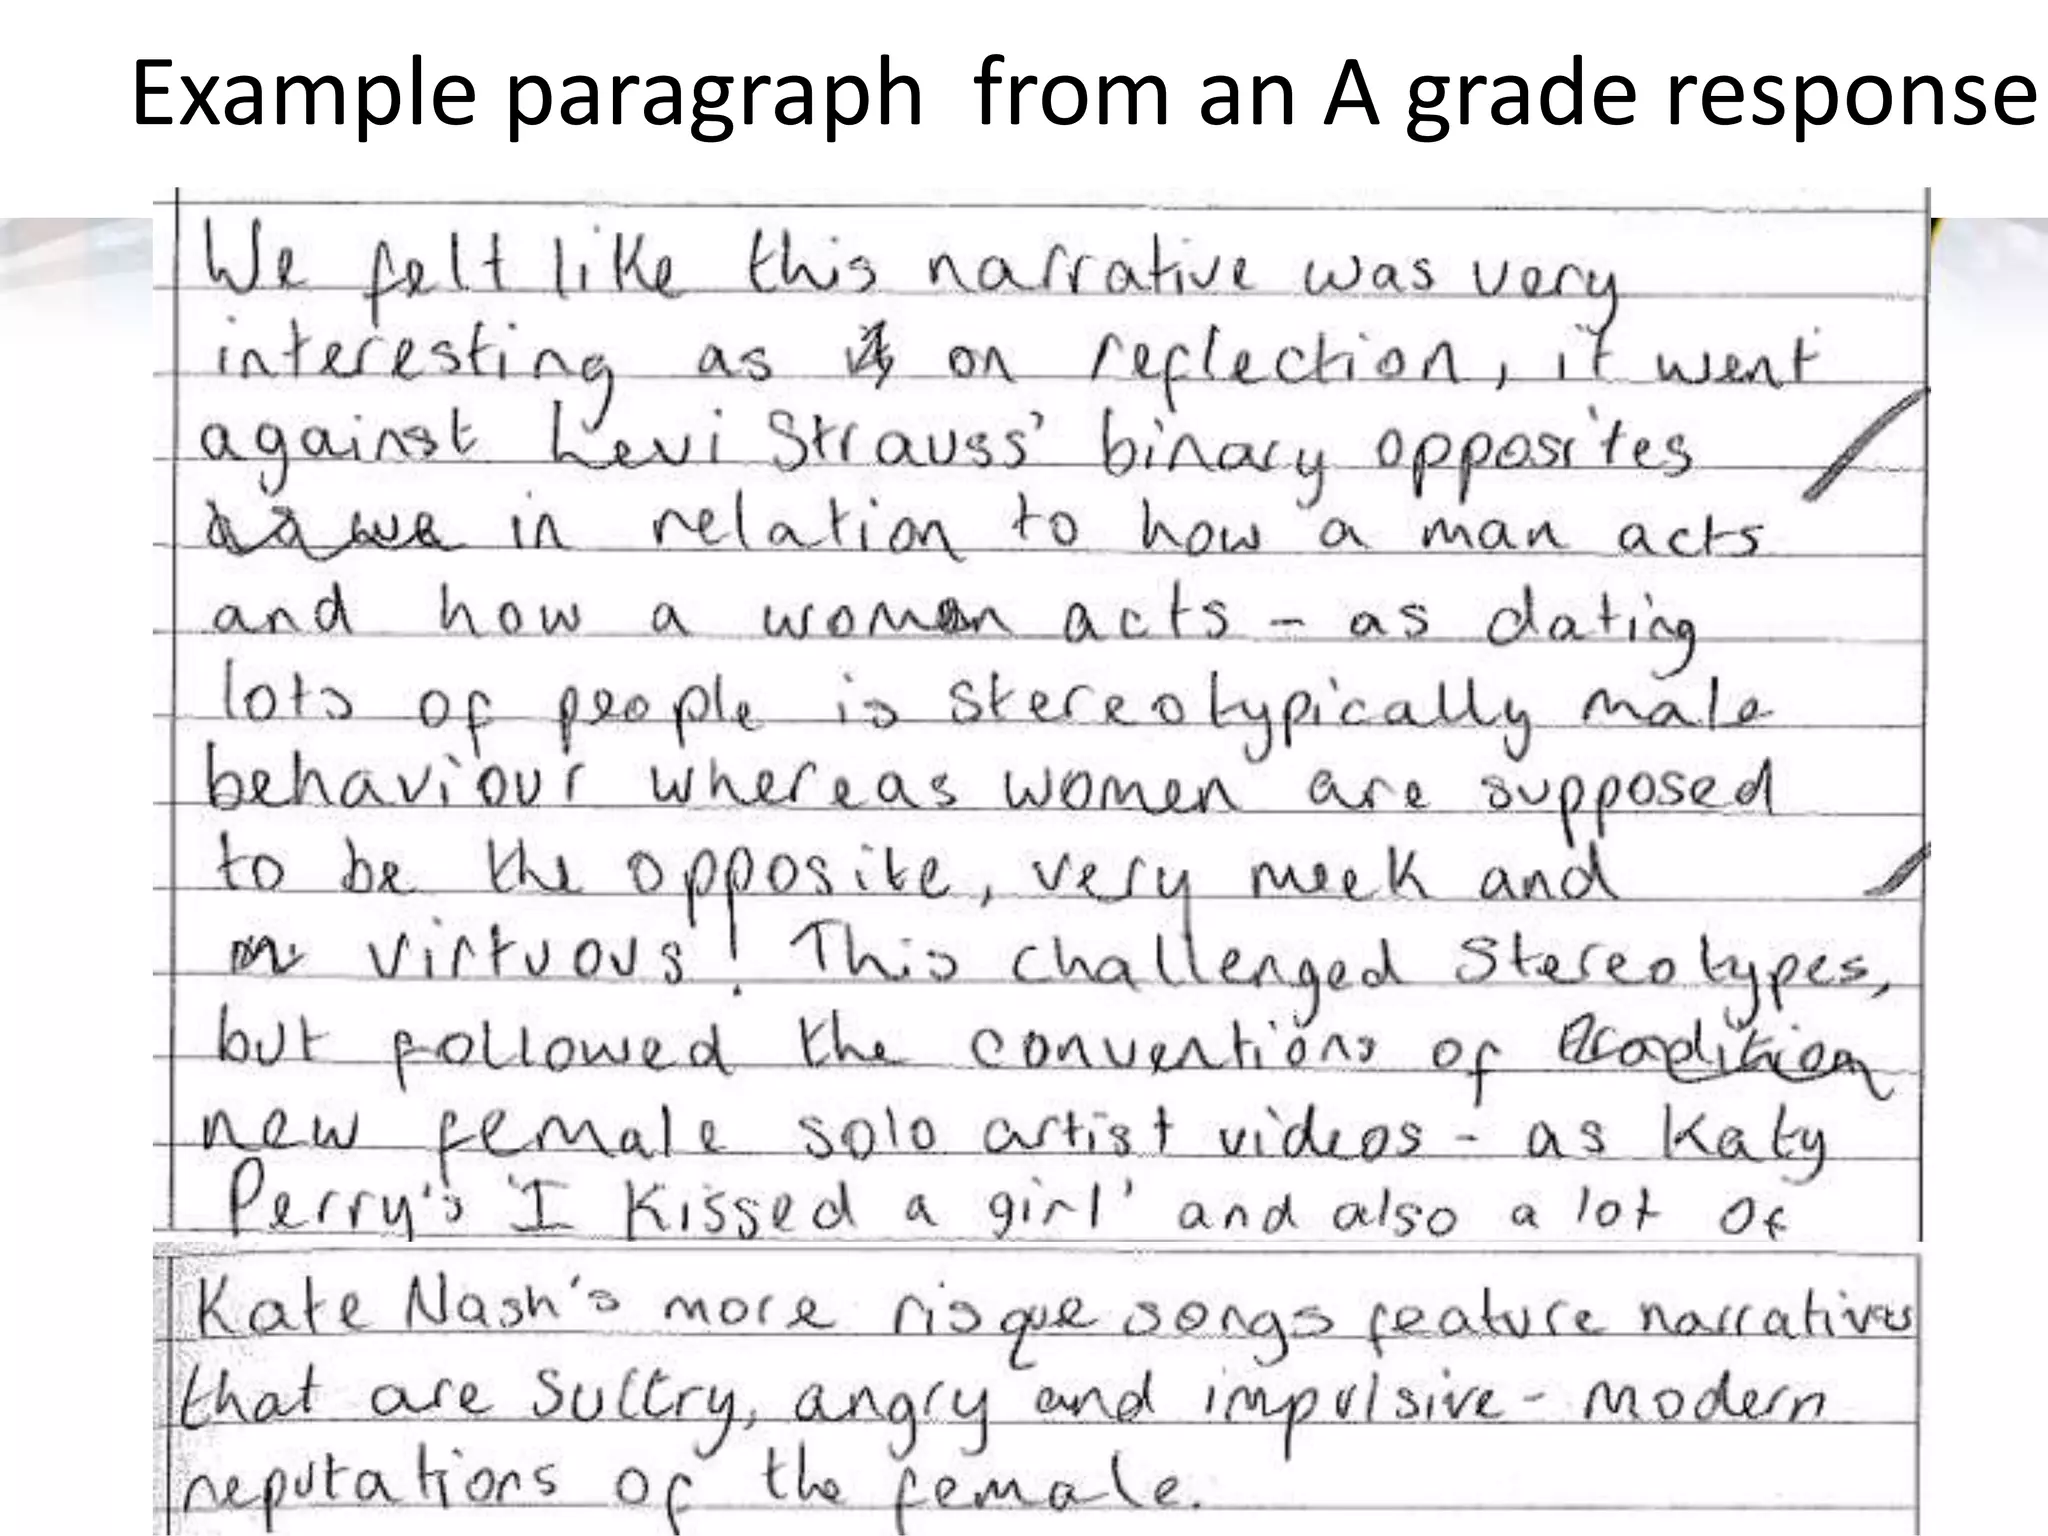 Example paragraph from an A grade response
We felt like this narrative was very
interesting as on reflection, it went
against Levi Strauss' binary opposites
in relation to how a man acts
and how a woman acts - as dating
lots of people is stereotypically male
behaviour whereas women are supposed
to be the opposite, very meek and
virtuous! This challenged stereotypes,
but followed the conventions of
new female solo artist videos - as Katy
Perry's 'I Kissed a girl' and also a lot of
Kate Nash's more risque songs feature narratives
that are sultry, angry and impulsive - modern
reputations of the female.